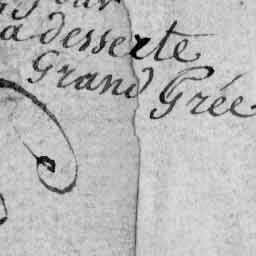 a desserte
Grand Grée